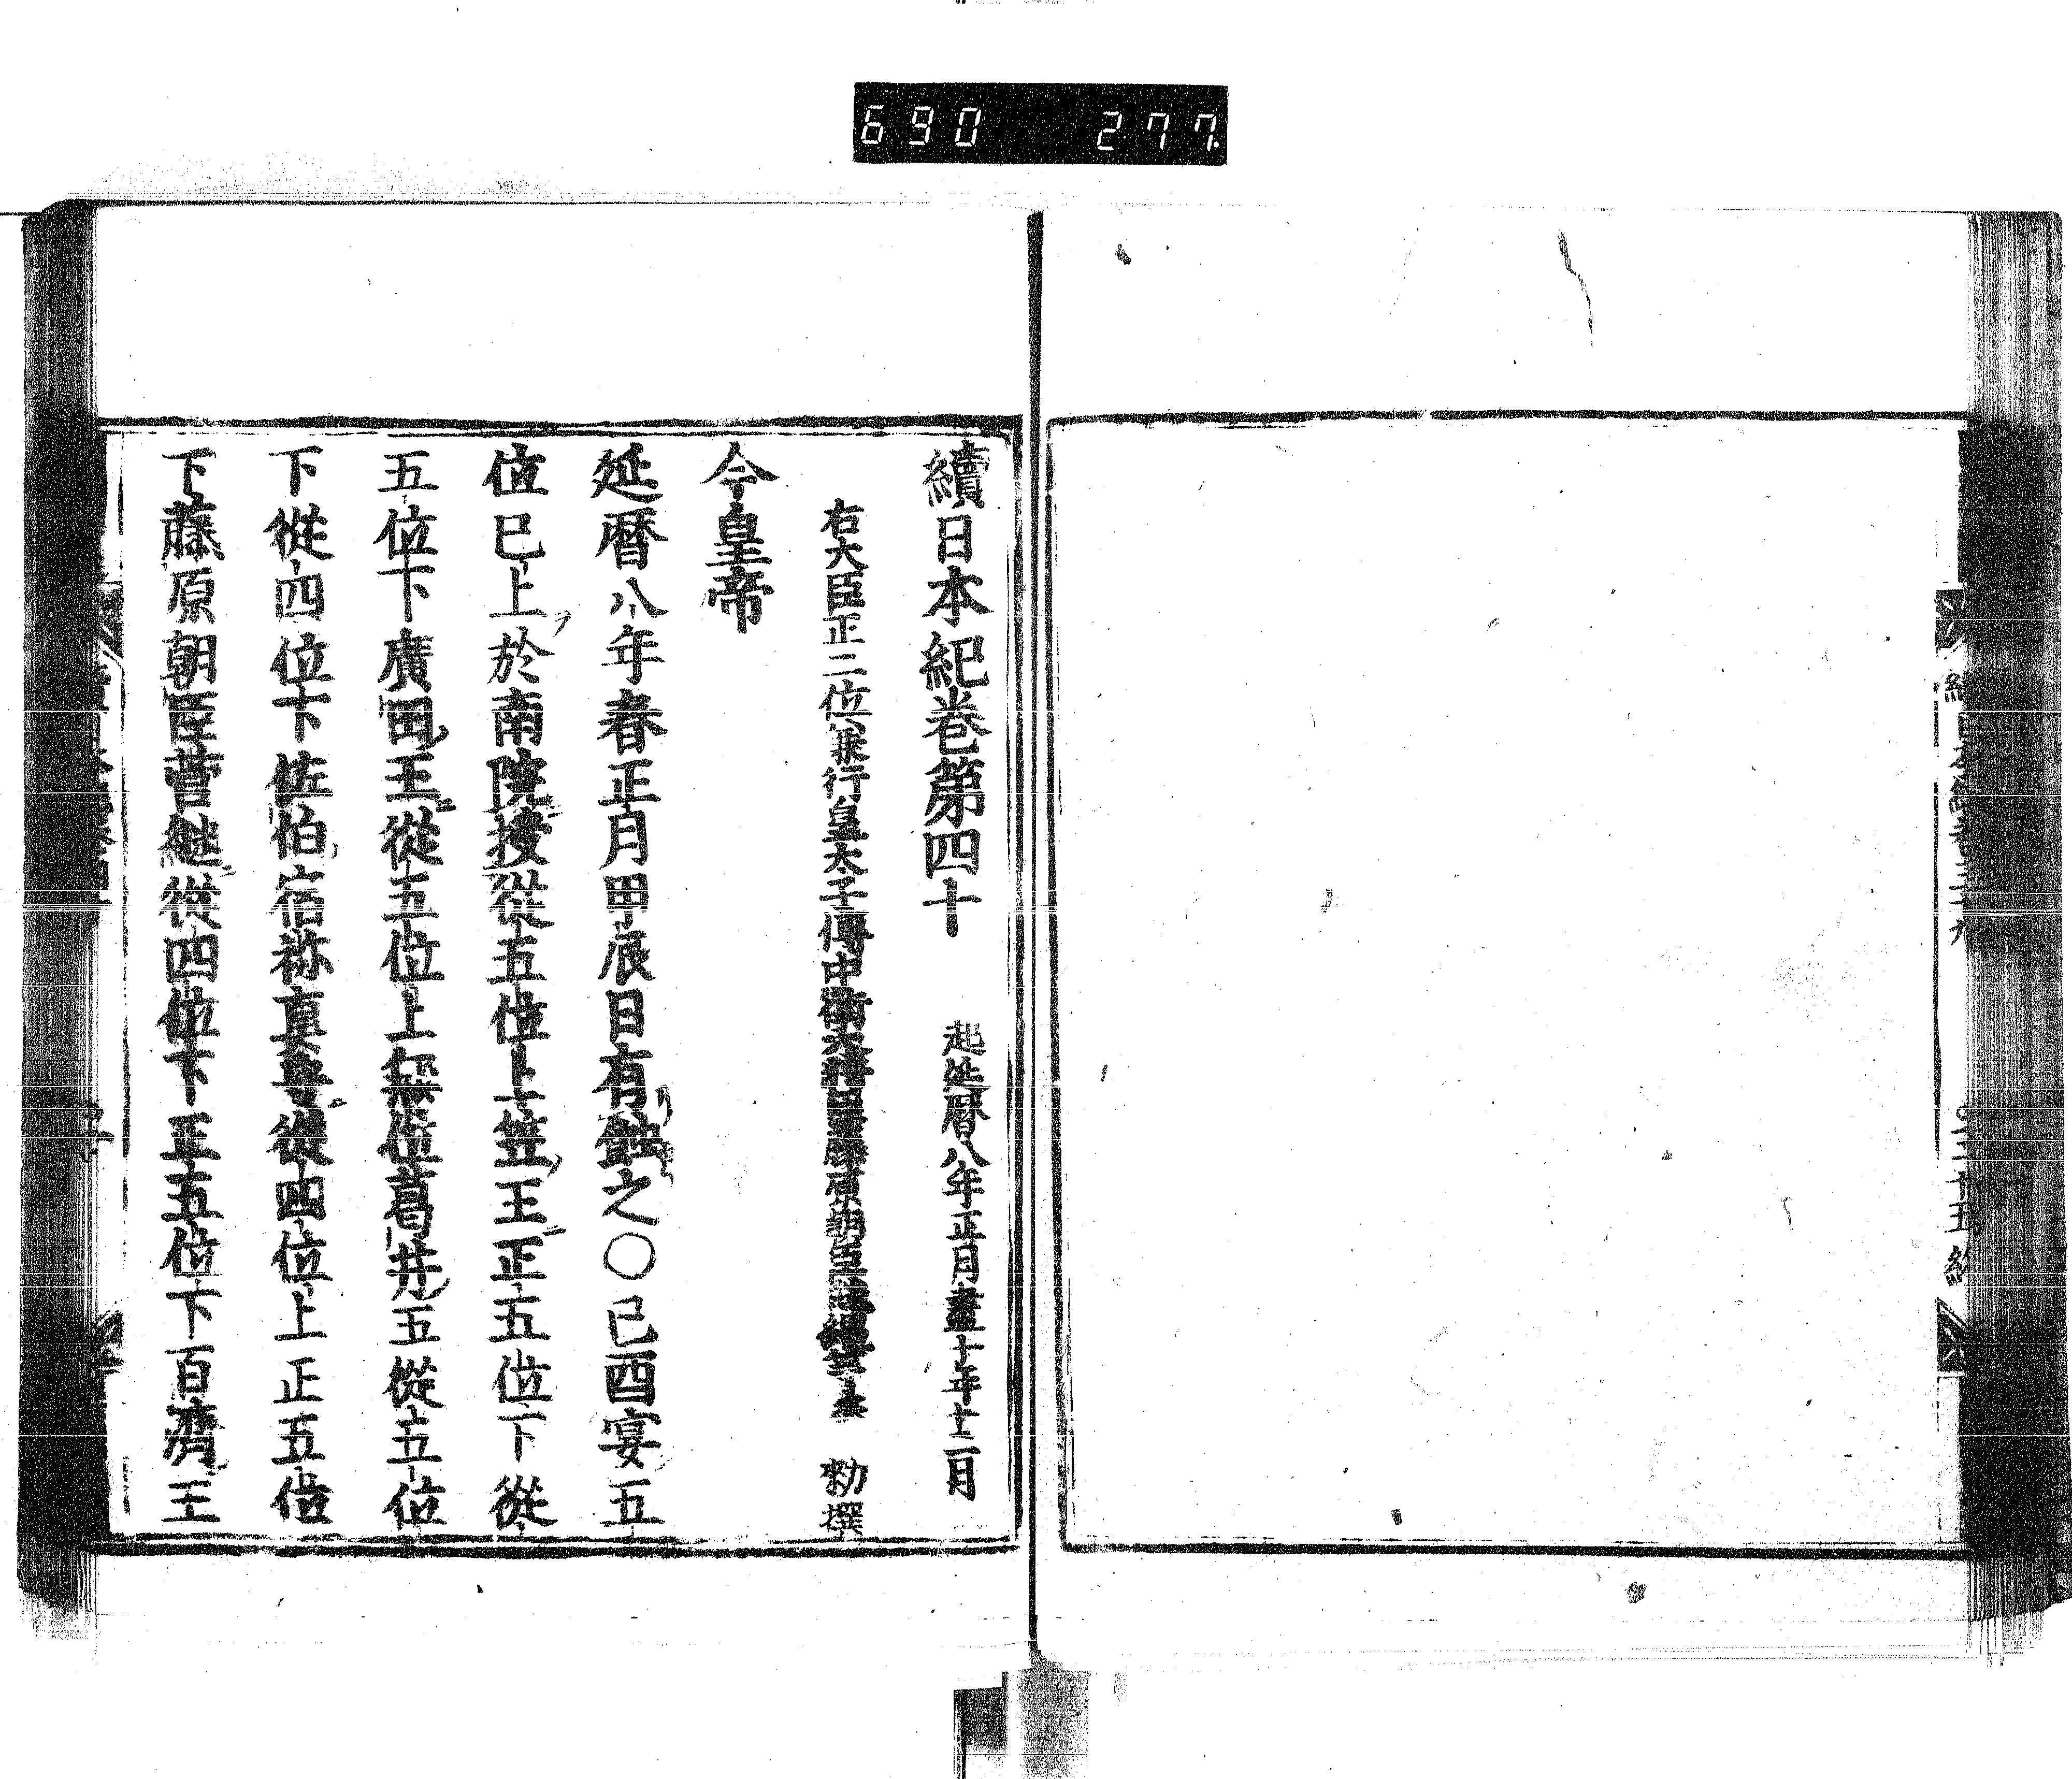 690 277
續日本紀巻第四十 起延暦八年正月盡十年十二月
右大臣正二位兼行皇太子傳中衛大将臣藤原朝臣継縄等奉 勅撰
今皇帝
延暦八年春正月甲辰日有蝕之〇已酉宴五
位已上於南院授從五位上笠王正五位下從
五位下廣田王從五位上無位葛井五從五位
下從四位下佐伯宿祢真守從四位上正五位
下藤原朝臣菅継從四位下正五位下百濟王